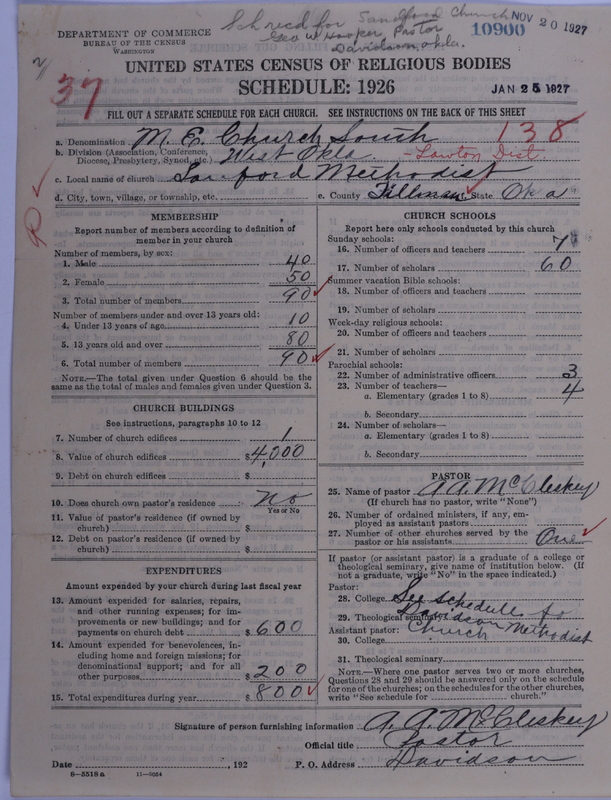 Sched for Sandford Church
Geo W Hooper Pastor
Davidson, Okla.
NOV 20 1927
10900
DEPARTMENT OF COMMERCE
BUREAU OF THE CENSUS
WASHINGTON
UNITED STATES CENSUS OF RELIGIOUS BODIES
SCHEDULE: 1926
JAN 25 1927
37
FILL OUT A SEPARATE SCHEDULE FOR EACH CHURCH. SEE INSTRUCTIONS ON THE BACK OF THIS SHEET
a. Denomination M. E. Church South 138
b. Division (Association, Conference, Diocese, Presbytery, Synod, etc.) West Okla - Lawton Dist.
c. Local name of church Sanford Methodist
d. City, town, village, or township, etc. e. County Tillman State Okla
R
MEMBERSHIP
Report number of members according to definition of
member in your church
Number of members, by sex:
1. Male 40
2. Female 50
3. Total number of members 90
Number of members under and over 13 years old:
4. Under 13 years of age 10
5. 13 years old and over 80
6. Total number of members 90
NOTE.—The total given under Question 6 should be the
same as the total of males and females given under Question 3.
CHURCH BUILDINGS
See instructions, paragraphs 10 to 12
7. Number of church edifices 1
8. Value of church edifices $ 4,000
9. Debt on church edifices $
10. Does church own pastor's residence : No
Yes or No
11. Value of pastor's residence (if owned by
church) $
12. Debt on pastor's residence (if owned by
church) $
EXPENDITURES
Amount expended by your church during last fiscal year
13. Amount expended for salaries, repairs,
and other running expenses; for im-
provements or new buildings; and for
payments on church debt $ 600
14. Amount expended for benevolences, in-
cluding home and foreign missions; for
denominational support; and for all
other purposes $ 200
15. Total expenditures during year $ 800
CHURCH SCHOOLS
Report here only schools conducted by this church
Sunday schools:
16. Number of officers and teachers 7
17. Number of scholars 60
Summer vacation Bible schools:
18. Number of officers and teachers
19. Number of scholars
Week-day religious schools:
20. Number of officers and teachers
21. Number of scholars
Parochial schools:
22. Number of administrative officers 3
23. Number of teachers—
a. Elementary (grades 1 to 8) 4
b. Secondary
24. Number of scholars—
a. Elementary (grades 1 to 8)
b. Secondary
PASTOR
25. Name of pastor A. A. McCleskey
(If church has no pastor, write "None")
26. Number of ordained ministers, if any, em-
ployed as assistant pastors
27. Number of other churches served by the
pastor or his assistants One
If pastor (or assistant pastor) is a graduate of a college or
theological seminary, give name of institution below. (If
not a graduate, write "No" in the space indicated.)
Pastor:
28. College See Schedule for
29. Theological seminary Davidson Methodist
Assistant pastor: Church
30. College
31. Theological seminary
NOTE.—Where one pastor serves two or more churches,
Questions 28 and 29 should be answered only on the schedule
for one of the churches; on the schedules for the other churches,
write "See schedule for ........ church."
Signature of person furnishing information A. A. McCleskey
Official title Pastor
Date , 192 P. O. Address Davidson
8—5518 a 11—9054